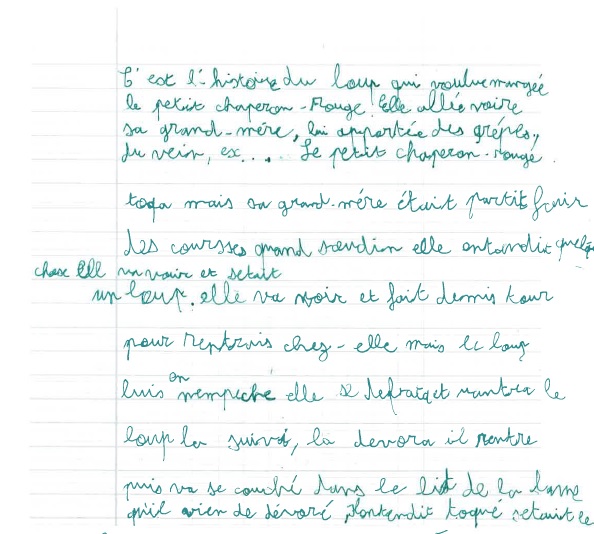 C'est l'histoire du loup qui voulue mangée
le petit chaperon-Rouge. Elle allée voire
sa grand-mére, lui apportée des crépes,
du vein, ex.... Le petit chaperon-rougé.
toqa mais sa grand-mére étuit partit fair
des coursses quand soudian elle entandit quelque
chose Elle un voir et setait
un loup. elle va voir et fait demis tour
pour rentrois chez-elle mais le loup
luis en nempeche elle se et rentra le
loup la suivi, la devora il rentre
puis va se couché dans le lit de la dame
qu'il vien de dévoré, toqué setait le